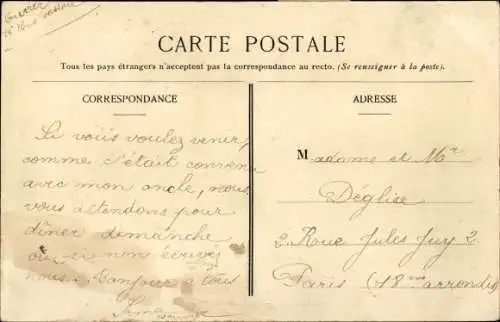 CARTE POSTALE
Tous les pays étrangers n'acceptent pas la correspondance au recto. (Se renseigner à la poste).
CORRESPONDANCE
Si vous voulez venir,
comme c'était convenu
avec mon oncle, nous
vous attendons pour
dîner dimanche
ou si non écrivez
nous. Bonjour à tous
ADRESSE
Madame et Mr
Déglise
2 Rue Jules Juy 2
Paris (18me arrondis